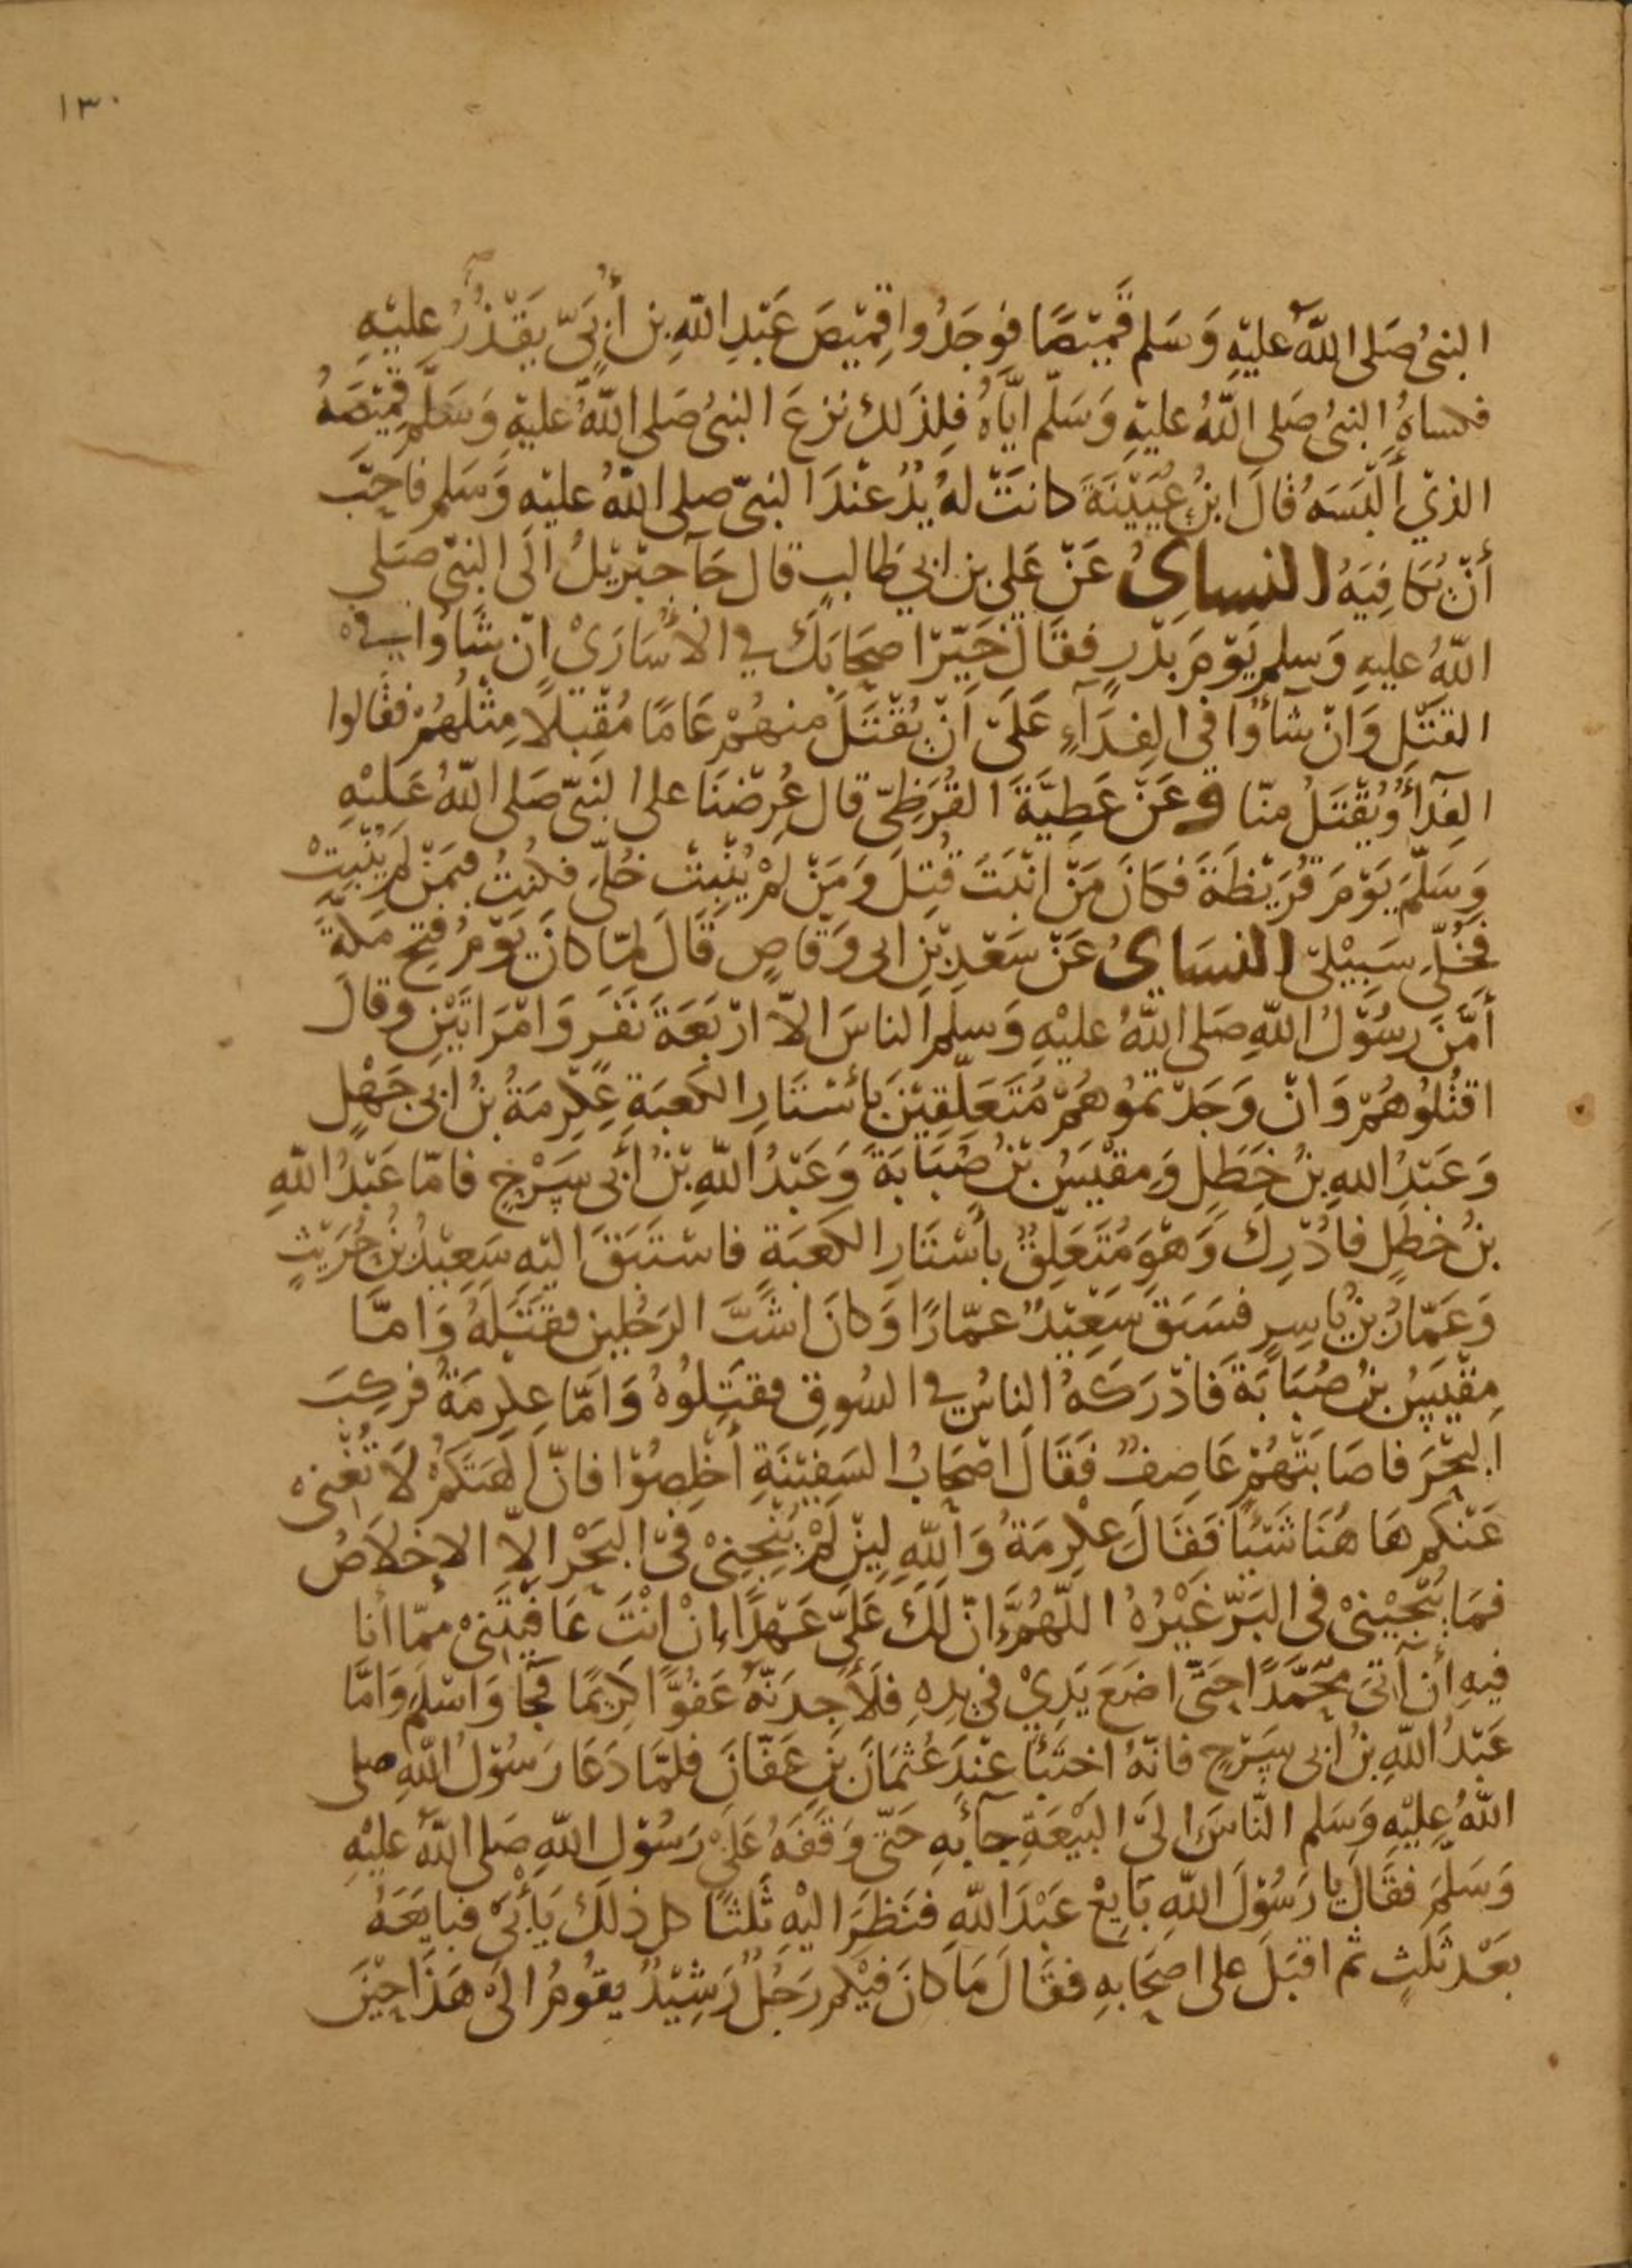 ١٣٠
النبىُ صَلى اللّهُ عليْهِ وَسَلم قَمِيْصًا فَوجَدُوا قِمِيْصَ عَبْدِ اللّهِ بن أُبَىّ يَقْدُرُ عليْهِ
فكساهُ النبىُ صَلى اللّهُ عليْهِ وَسَلّم ايّاهُ فلِذَلك نزعَ النبىُ صَلى اللّهُ عليْهِ وَسَلَّم قِمِيْصَهُ
الذِيْ أَلْبَسَهُ قَالَ ابنُ عُيَيْنَةَ كانَتْ لهُ يَدٌ عنْدَ النبىّ صلى اللّهُ عليْهِ وَسَلم فأَحَبّ
أنْ يُكَافِيَهُ النساىُ عَنْ عَلي بن ابي طالبٍ قال جَآ جبْرِيْلُ الَى النبىّ صَلى
اللّهُ عليهِ وَسلم يَوْمَ بَدْرٍ فقَالَ خَيّرْ اصحَابَكَ في الأسَارَىْ إنْ شَاوُا في
القتْلِ وَانْ شآؤُا فى الفِدَآءِ عَلَىْ اَنْ يُقْتَلَ منهُمْ عَامًا مُقْبلاً مِثْلُهُمْ فقَالوا
الفِدَآُ وَيُقْتَلُ منّا وعَنْ عَطِيَّةَ القُرَظِىّ قال عُرِضْنَا على النبىّ صَلى اللّهُ عَليْهِ
وَسَلّمَ يَوْمَ قُرَيْظَةَ فكَانَ مَنْ انْبَتَ قُتِلَ وَمَنْ لمْ يُنْبِتْ خُلِّىَ فكنتُ فيمَنْ لمْ يُنْبِتْ
فخُلِّى سَبِيْلىْ النسَاىُ عَنْ سَعْدِ بْنِ ابى وَقاصٍ قَالَ لمّا كانَ يَوْمُ فتح مَكّةَ
أمَّنَ رسُوْلُ اللّهِ صَلى اللّهُ عليْهِ وَسلم الناسَ الاّ ارْبَعَةَ نَفَرٍ وَامْرَاتَيْنِ وقالَ
اقتُلُوهُمْ وَانْ وَجَدْتمُوهُمْ مُتَعَلِّقِيْنَ بأسْتَارِ الكَعبَةِ عِكْرِمَةُ بنُ ابى جَهْلٍ
وَعَبْدُ اللهِ بنُ خَطَلٍ وَمِقْيَسُ بْنُ صُبَابَةَ وَعَبْدُ اللّهِ بْنُ أبى سَرْحٍ فامّا عَبْدُ اللّهِ
بنُ خطَلٍ فادْرِكَ وَهْوَ مُتَعَلِّقٌ بأسْتَارِ الكَعبَةِ فاسْتَبَقَ اليْهِ سَعِيْدُ بْنُ حُرَيْثٍ
وَعَمّارُ بنُ يَاسِرٍ فسَبَقَ سَعِيْدٌ عمّارًا وَكانَ اشَبَّ الرَجُلين فقتَلَهُ وَامَّا
مِقْيَسُ بنُ صُبَابَةَ فَادْرَكَهُ الناسُ في السُوقِ فقتَلوُهُ وَامّا عِكرِمَةُ فركِبَ
البحْرَ فاصَابَتْهُمْ عَاصِفٌ فقَالَ اصْحَابُ السَفِيْنَةِ أخْلِصُوْا فانّ آلِهَتَكمْ لاَ تُغْنى
عَنْكم هَا هُنَا شَيْئًا فقَالَ عِكْرِمَةُ وَاللّهِ ليِنْ لَمْ يُنْجِنِىْ فىْ البَحْر الاّ الاِخلاَصُ
فمَا يُنْجِيْنىْ فى البَرّ غَيْرُهُ اللّهُمَّ انّ لَكَ عَلَىّ عَهْدًا إنْ انْتَ عَافيْتَنىْ ممّا أنا
فيهِ أن آتىَ محَمَّدًا حَتّى اضَعَ يَدِيْ فى يدِهِ فلأَجِدَنّهُ عَفُوًّا كرِيمًا فجَا وَاسْلمَ وَامَّا
عَبْدُ اللّهِ بنُ ابى سَرْحٍ فانّهُ اختَبَأ عنْدَ عُثمَانَ بْنِ عَفّانَ فلمّا دَعَا رَسُوْلُ اللّهِ صلى
اللّهُ عليْهِ وَسَلم النّاسَ الىَ البَيْعَةِ جآءَ بهِ حَتّى وَقَفَهُ عَلَىْ رَسُوْل اللّهِ صَلى اللّهُ عليْهِ
وَسَلّمَ فقَالَ يا رَسُوْلَ اللّهِ بَايِعْ عَبْدَ اللّهِ فنَظَرَ اليْهِ ثَلثًا كل ذلكَ يَأبَىْ فبايَعَهُ
بعَدْ ثَلثٍ ثم اقبَلَ على اصحَابهِ فقَالَ مَا كانَ فيْكم رَجُلٌ رَشِيْدٌ يقوُمُ الَى هَذَا حِيْنَ